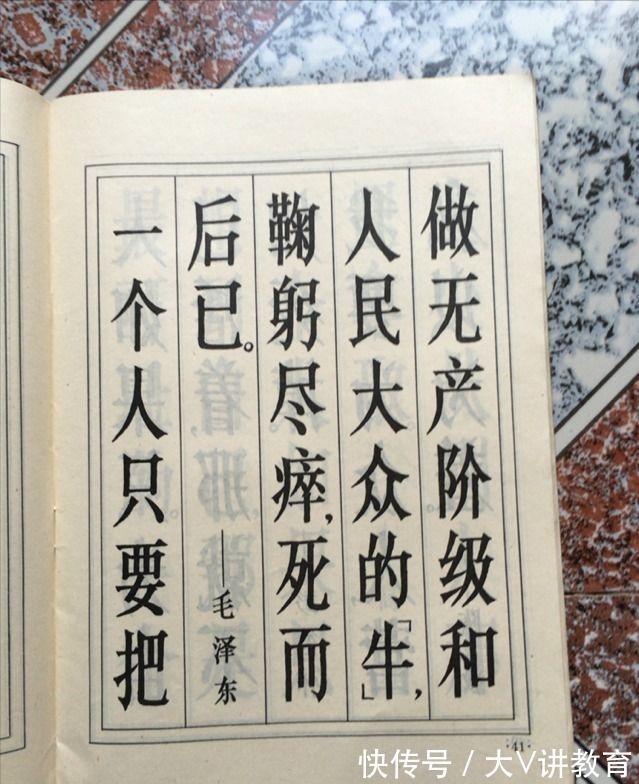 做无产阶级和
人民大众的「牛」，
鞠躬尽瘁，死而
后已。
——毛泽东
一个人只要把
·41·
快传号／大V讲教育